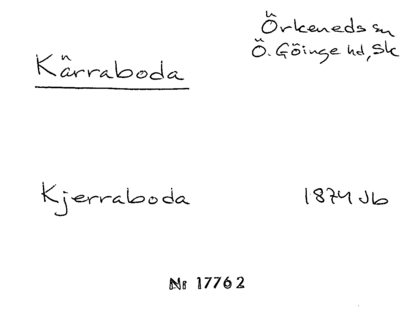 Örkeneds sn
Ö. Göinge hd, Sk
Kärraboda
Kjerraboda 1874 Jb
Nr 17762